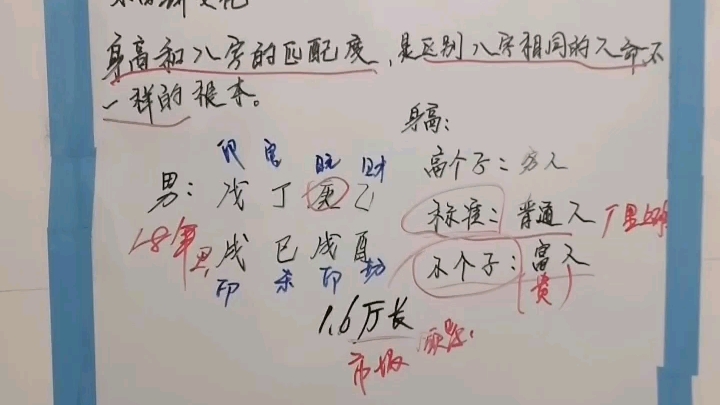 身高和八字的匹配度,是区别八字相同的人命不
一样的根本。
身高:
印 官 日元 财
高个子: 穷人
男: 戊 丁 庚 乙
标准: 普通人
18年 戌 巳 戌 酉
小个子: 富人
(贵)
印 杀 印 劫
1.6
市级